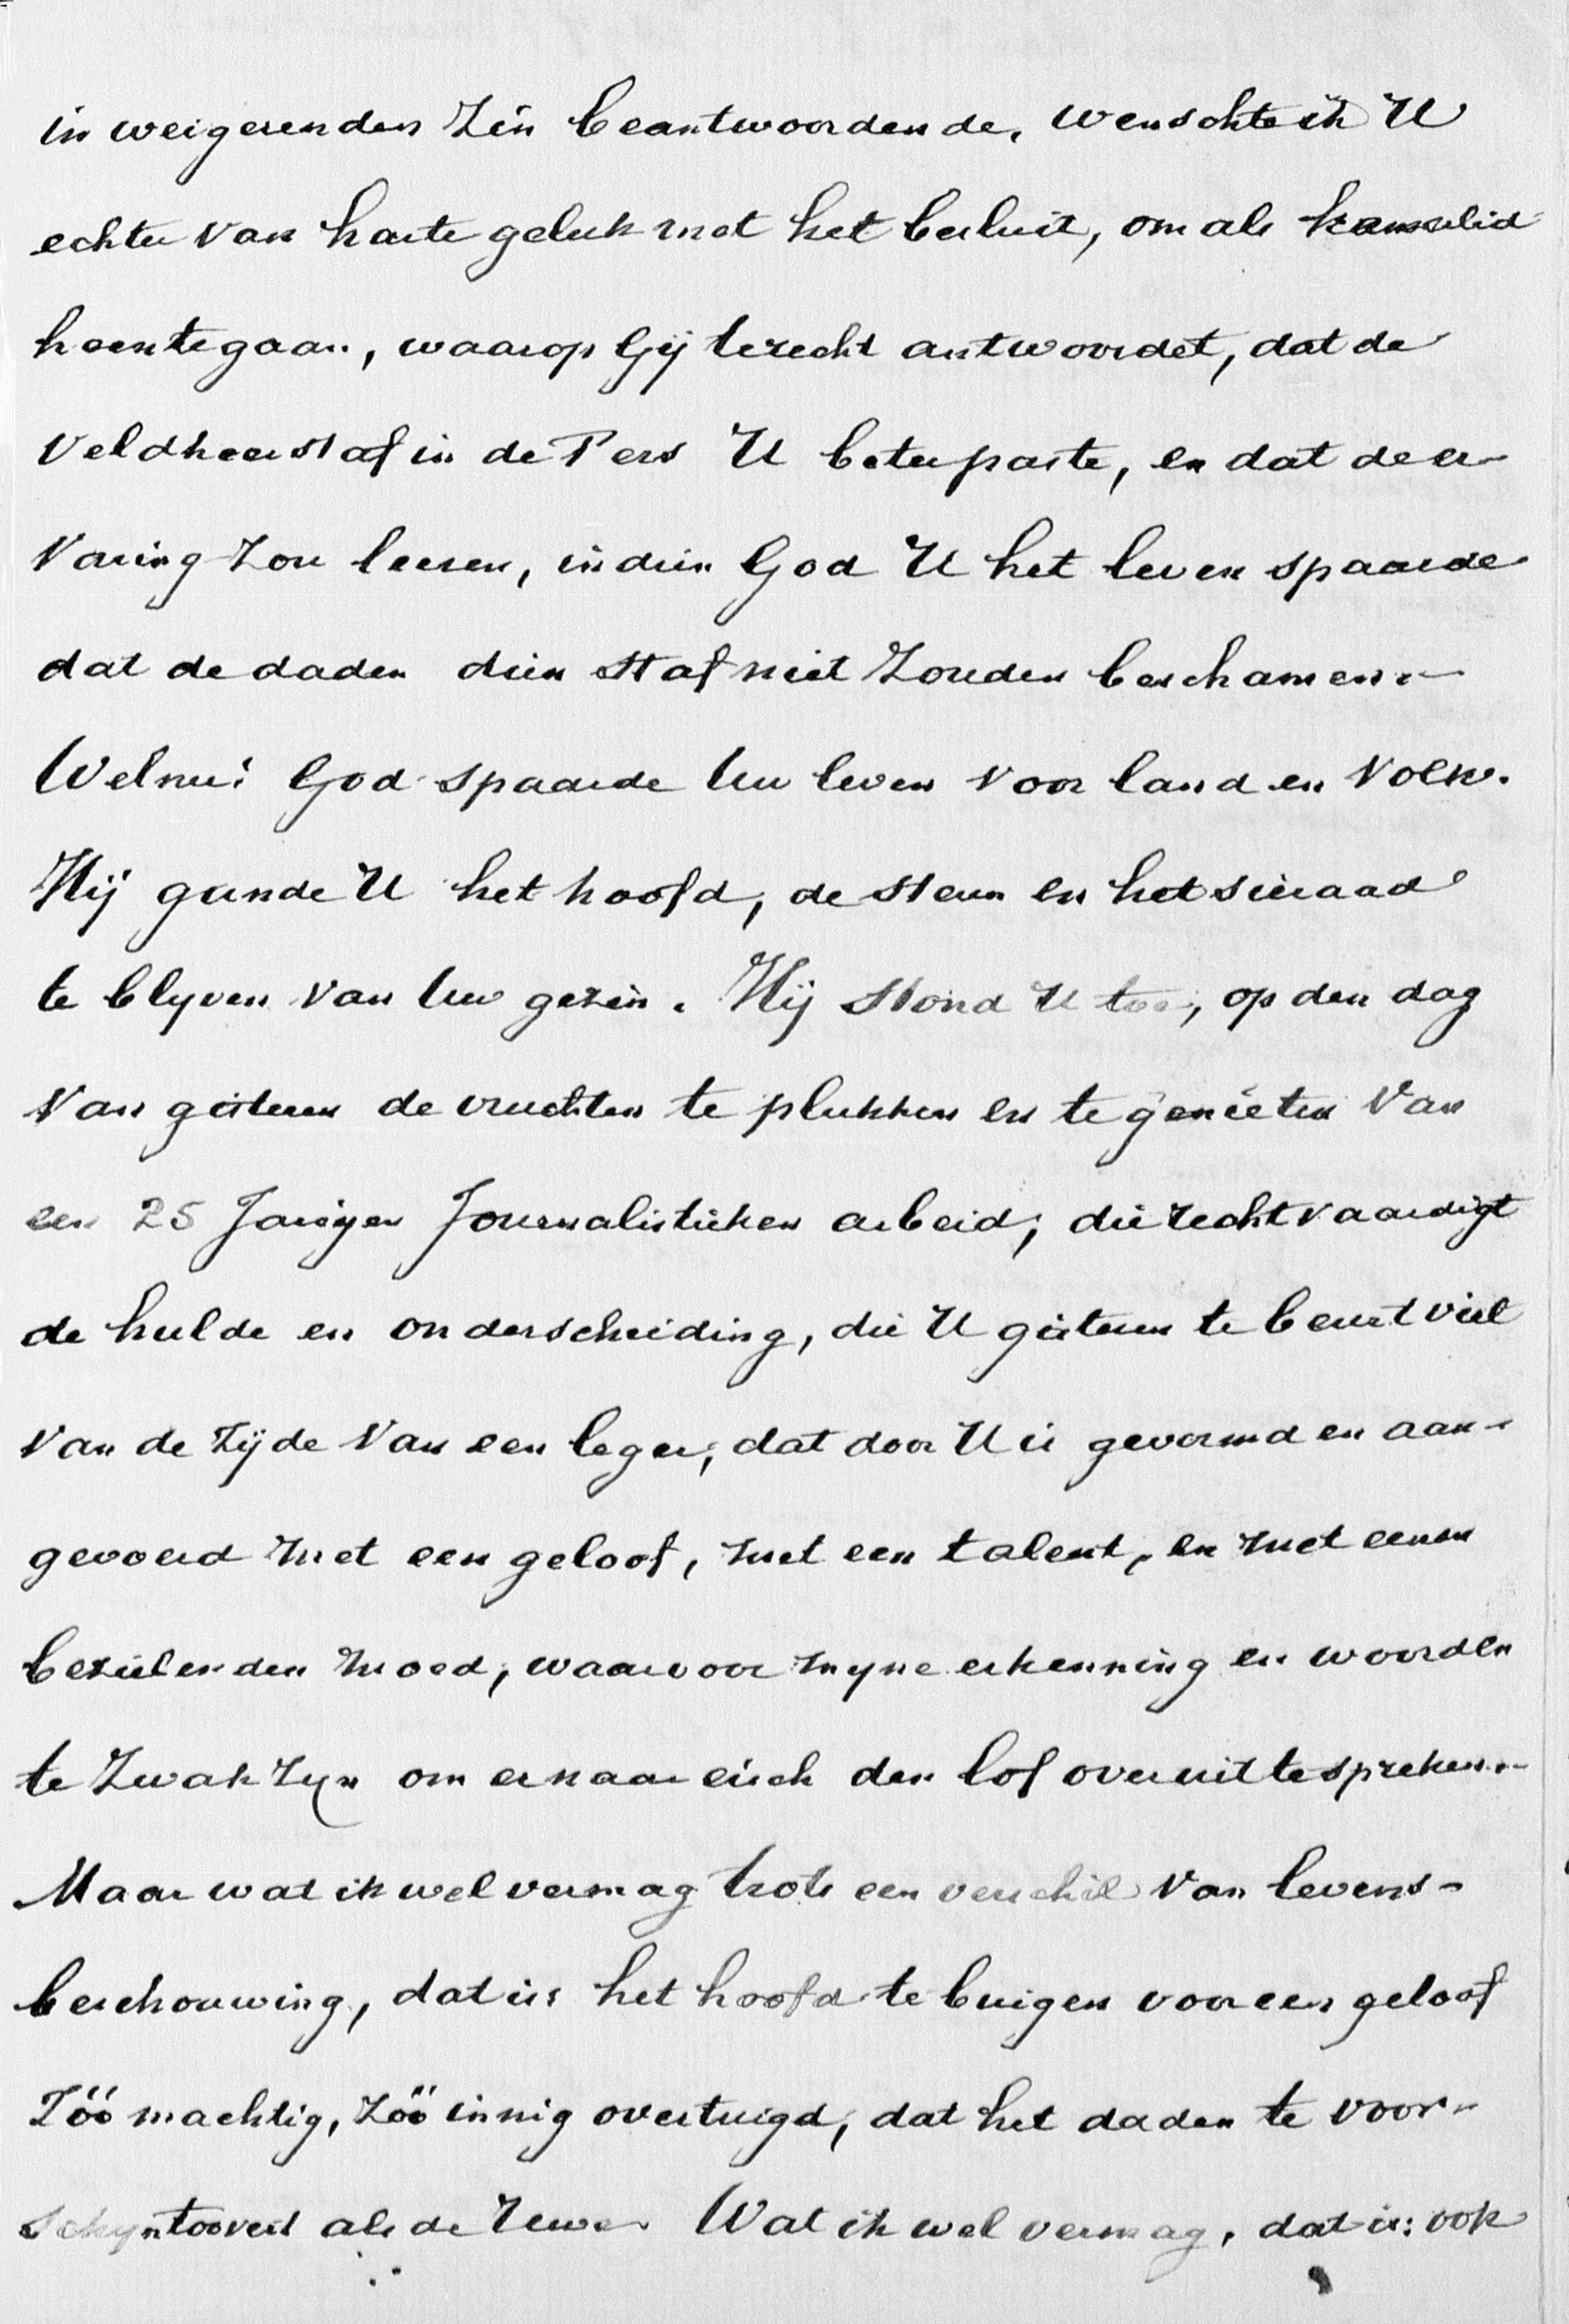 in weigerenden zin beantwoordende, wenschte ik U
echter van harte geluk met het besluit, om als kamerlid
heentegaan, waarop Gij terecht antwoordet, dat de
Veldheerstaf in de Pers U beter paste, en dat de er-
varing zou leeren, indien God U het leven spaarde
dat de daden dien staf niet zouden beschamen.-
Welnu! God spaarde Uw leven voor land en volk.
Hij gunde U het hoofd, de steun en het sieraad
te blyven van Uw gezin. Hij stond U toe, op den dag
van gisteren de vruchten te plukken en te genieten van
een 25 Jarigen Journalistieken arbeid, die rechtvaardigt
de hulde en onderscheiding, die U gisteren te beurt viel
van de zijde van een leger, dat door U is gevormd en aan-
gevoerd met een geloof, met een talent, en met eenen
bezielenden moed, waarvoor myne erkenning en woorden
te zwak zyn om er naar eisch den lof over uittespreken.-
Maar wat ik wel vermag trots een verschil van levens-
beschouwing, dat is het hoofd te buigen voor een geloof
Zóó machtig, zóó innig overtuigd, dat het daden te voor-
schyn toovert als de Uwe. Wat ik wel vermag, dat is: ook